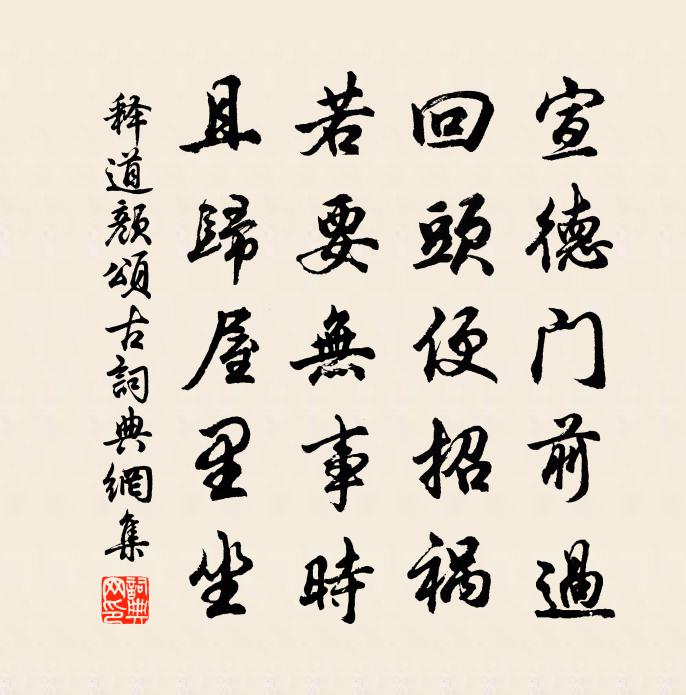 宣德门前過
回頭便招禍
若要無事時
且歸屋里坐
释道颜頌古詞典網集
詞典网印